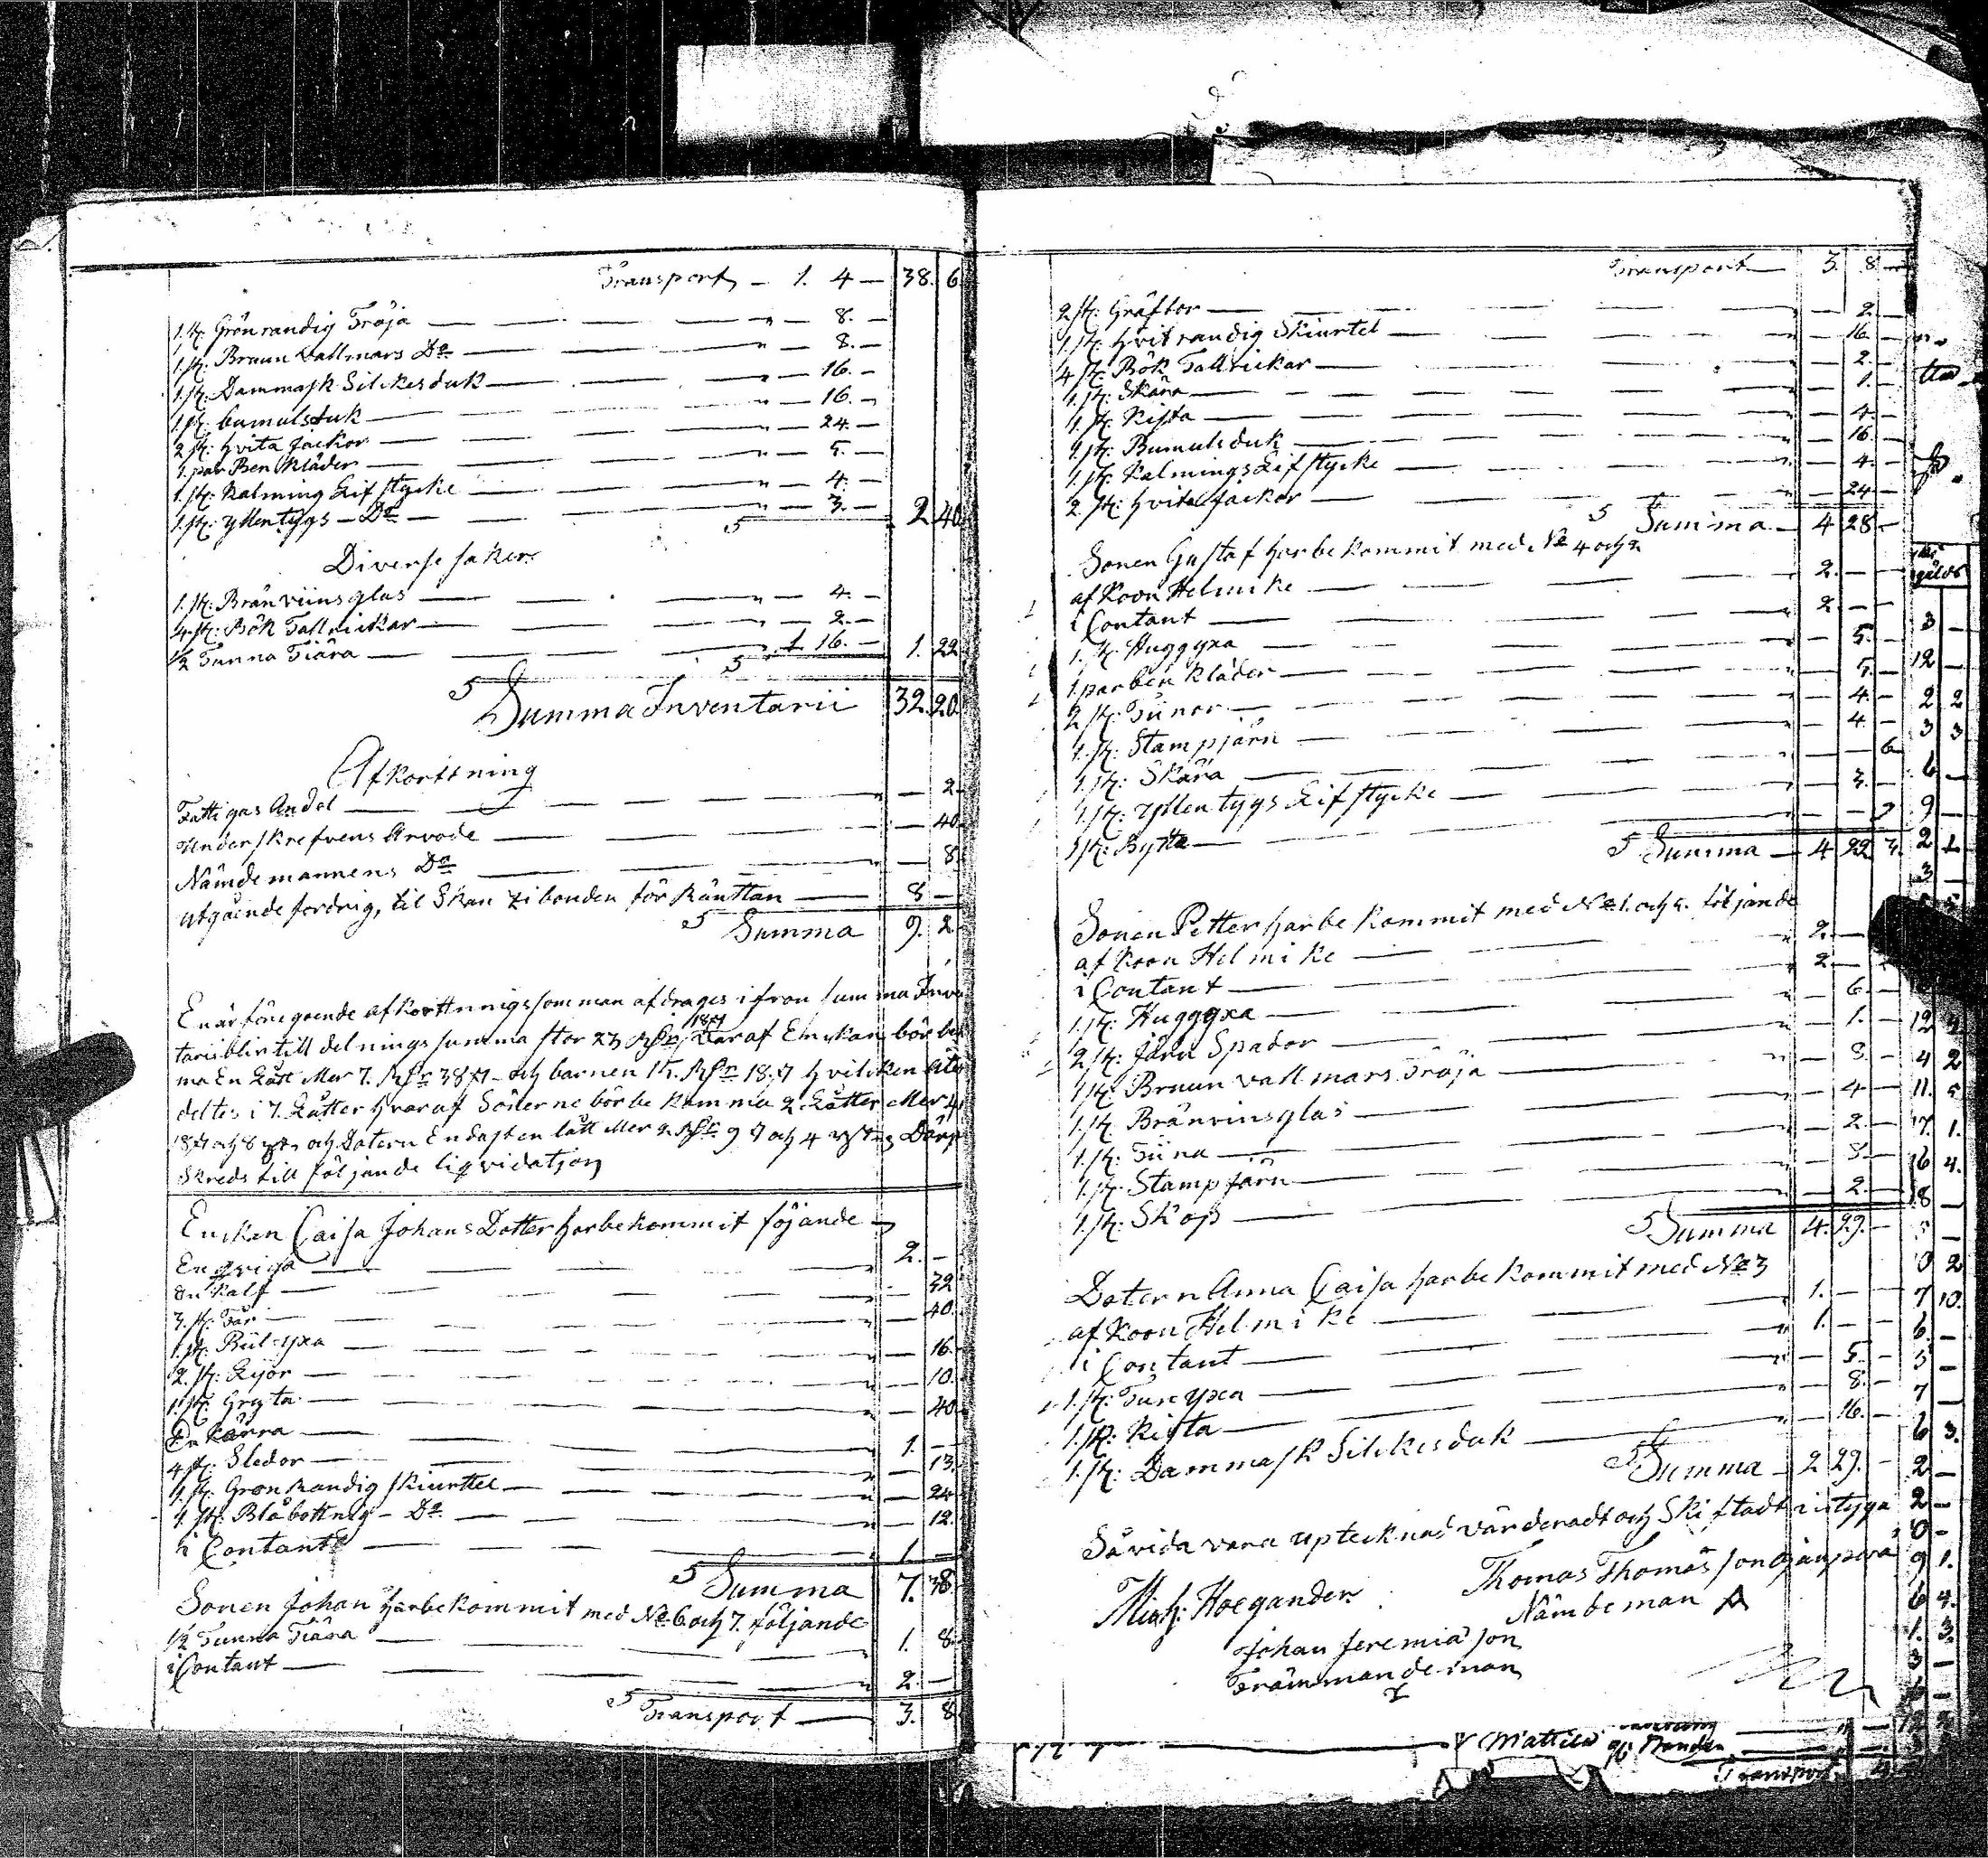 Transport — 1. 4 — 38. 6.
1. st: Grönrandig Tröja — " — 8. —
1. st: Bruun Vallmars Do — " — 8. —
1. st: Dammask Silckesduk — " — 16. —
1. st: bumulsduk — " — 16. —
2 st: hvita Jackor — " — 24. —
1. par Ben Kläder — " — 5. —
1. st: Kalming Lifstycke — " — 4. —
1. st: yllentygs — Do — " — 3. — 2. 40.
Diverse saker
1. st: Bränviinsglas — " — 4. —
4. st: Bök Tallrickar — " — 2. —
1/2 Tunna Tiära — 1 16. — 1. 22.
Summa Inventarii 32. 20.
Afkorttning
Fattigas Andel — 2.
Underskrefvens Arvode — 40.
Nämdemannens Do — 8
utgående fordrig, til Skan zibonden för Ränttan — 8 —
Summa 9. 2.
Enär föregoende afkorttnnigs somman afdrages ifron summa Inve
tarii blir till delnings summa stor 23 Rdr 18 s Daraf Enckan bör bek
ma En Lått Mer 7. Rdr 38 s och barnen 15. Rdr 18. s hvilcken åter
deltes i 7. Låtter hvaraf Sönerne bör bekamma 2. Låtter Mer 4
18 s och 8 och Datern Endast en lått Mer 2. Rdr 9 s och 4
Skreds till följande liqvidatjon
Enckan Caisa Johans Dotter har bekommit föjande
En qviga — 2. —
En Kalf — 32
3. st: Får — 40.
1. st: Bül-yxa — 16.
2. st: Lijör — 10.
1. st: Gryta — 40.
En kärra — 1. —
4 st: Sledor — 13.
1. st: Grön Randig skiurttel — 24
1. st: Blåbottnig — Do — 12.
i Contant — 1. —
Summa 7. 38.
Sonen Johan har bekommit med No 6 och 7. följande
1/2 Tunna Tiära — 1. 8.
i Contant — 2. —
Transport — 3. 8.
Transport — 3. 8 —
2 st: Gräftor — 2. —
1. st: hvit randig Skiurtel — 16. —
4 st: Bök Tallrickar — 2. —
1. st: Skära — 1. —
1. st: Kista — 4. —
1. st: Bumulsduk — 16. —
1. st: Kalmings Lifstycke — 4. —
2. st: hvita Jackor — 24 —
Summa — 4 28 —
Sonen Gustaf har bekommit med No 4 och 2.
af Koon Helmike — 2. —
i Contant — 2 —
1. st: Huggyxa — 5. —
1 par ben kläder — 5. —
2 st: Tünor — 4. —
1. st: Stampjärn — 4. —
1. st: Skära — 6
1. st: yllentygs Lifstycke — 3. —
1 st: Bytta —
Summa — 4 22
Sonen Petter har bekommit med No 1. och 5. följande
af Koon Helmike — 2. —
i Contant — 2 —
1. st: Huggyxa — 6. —
2 st: Järn Spador — 1. —
1 st: Bruun vallmars Tröja — 8. —
1. st: Bränvinsglas — 4 —
1. st: Tüna — 2. —
1. st: Stampjärn — 3. —
1. st: Skop — 2. —
Summa 4. 29. —
Datern Anna Caisa har bekommit med No 3
af Koon Helmike — 1. —
i Contant — 1. —
1. st: yxa — 5. —
1. st: Kista — 8. —
1. st: Dammask Silckesduk — 16. —
Summa — 2 29. —
Såvida vara uptecknad värderadt och Skiftadt intyga
Mich: Hoegander
Thomas Thomasson
Nämdeman
Johan Jeremiason
Främmande man
Mattila
Transport